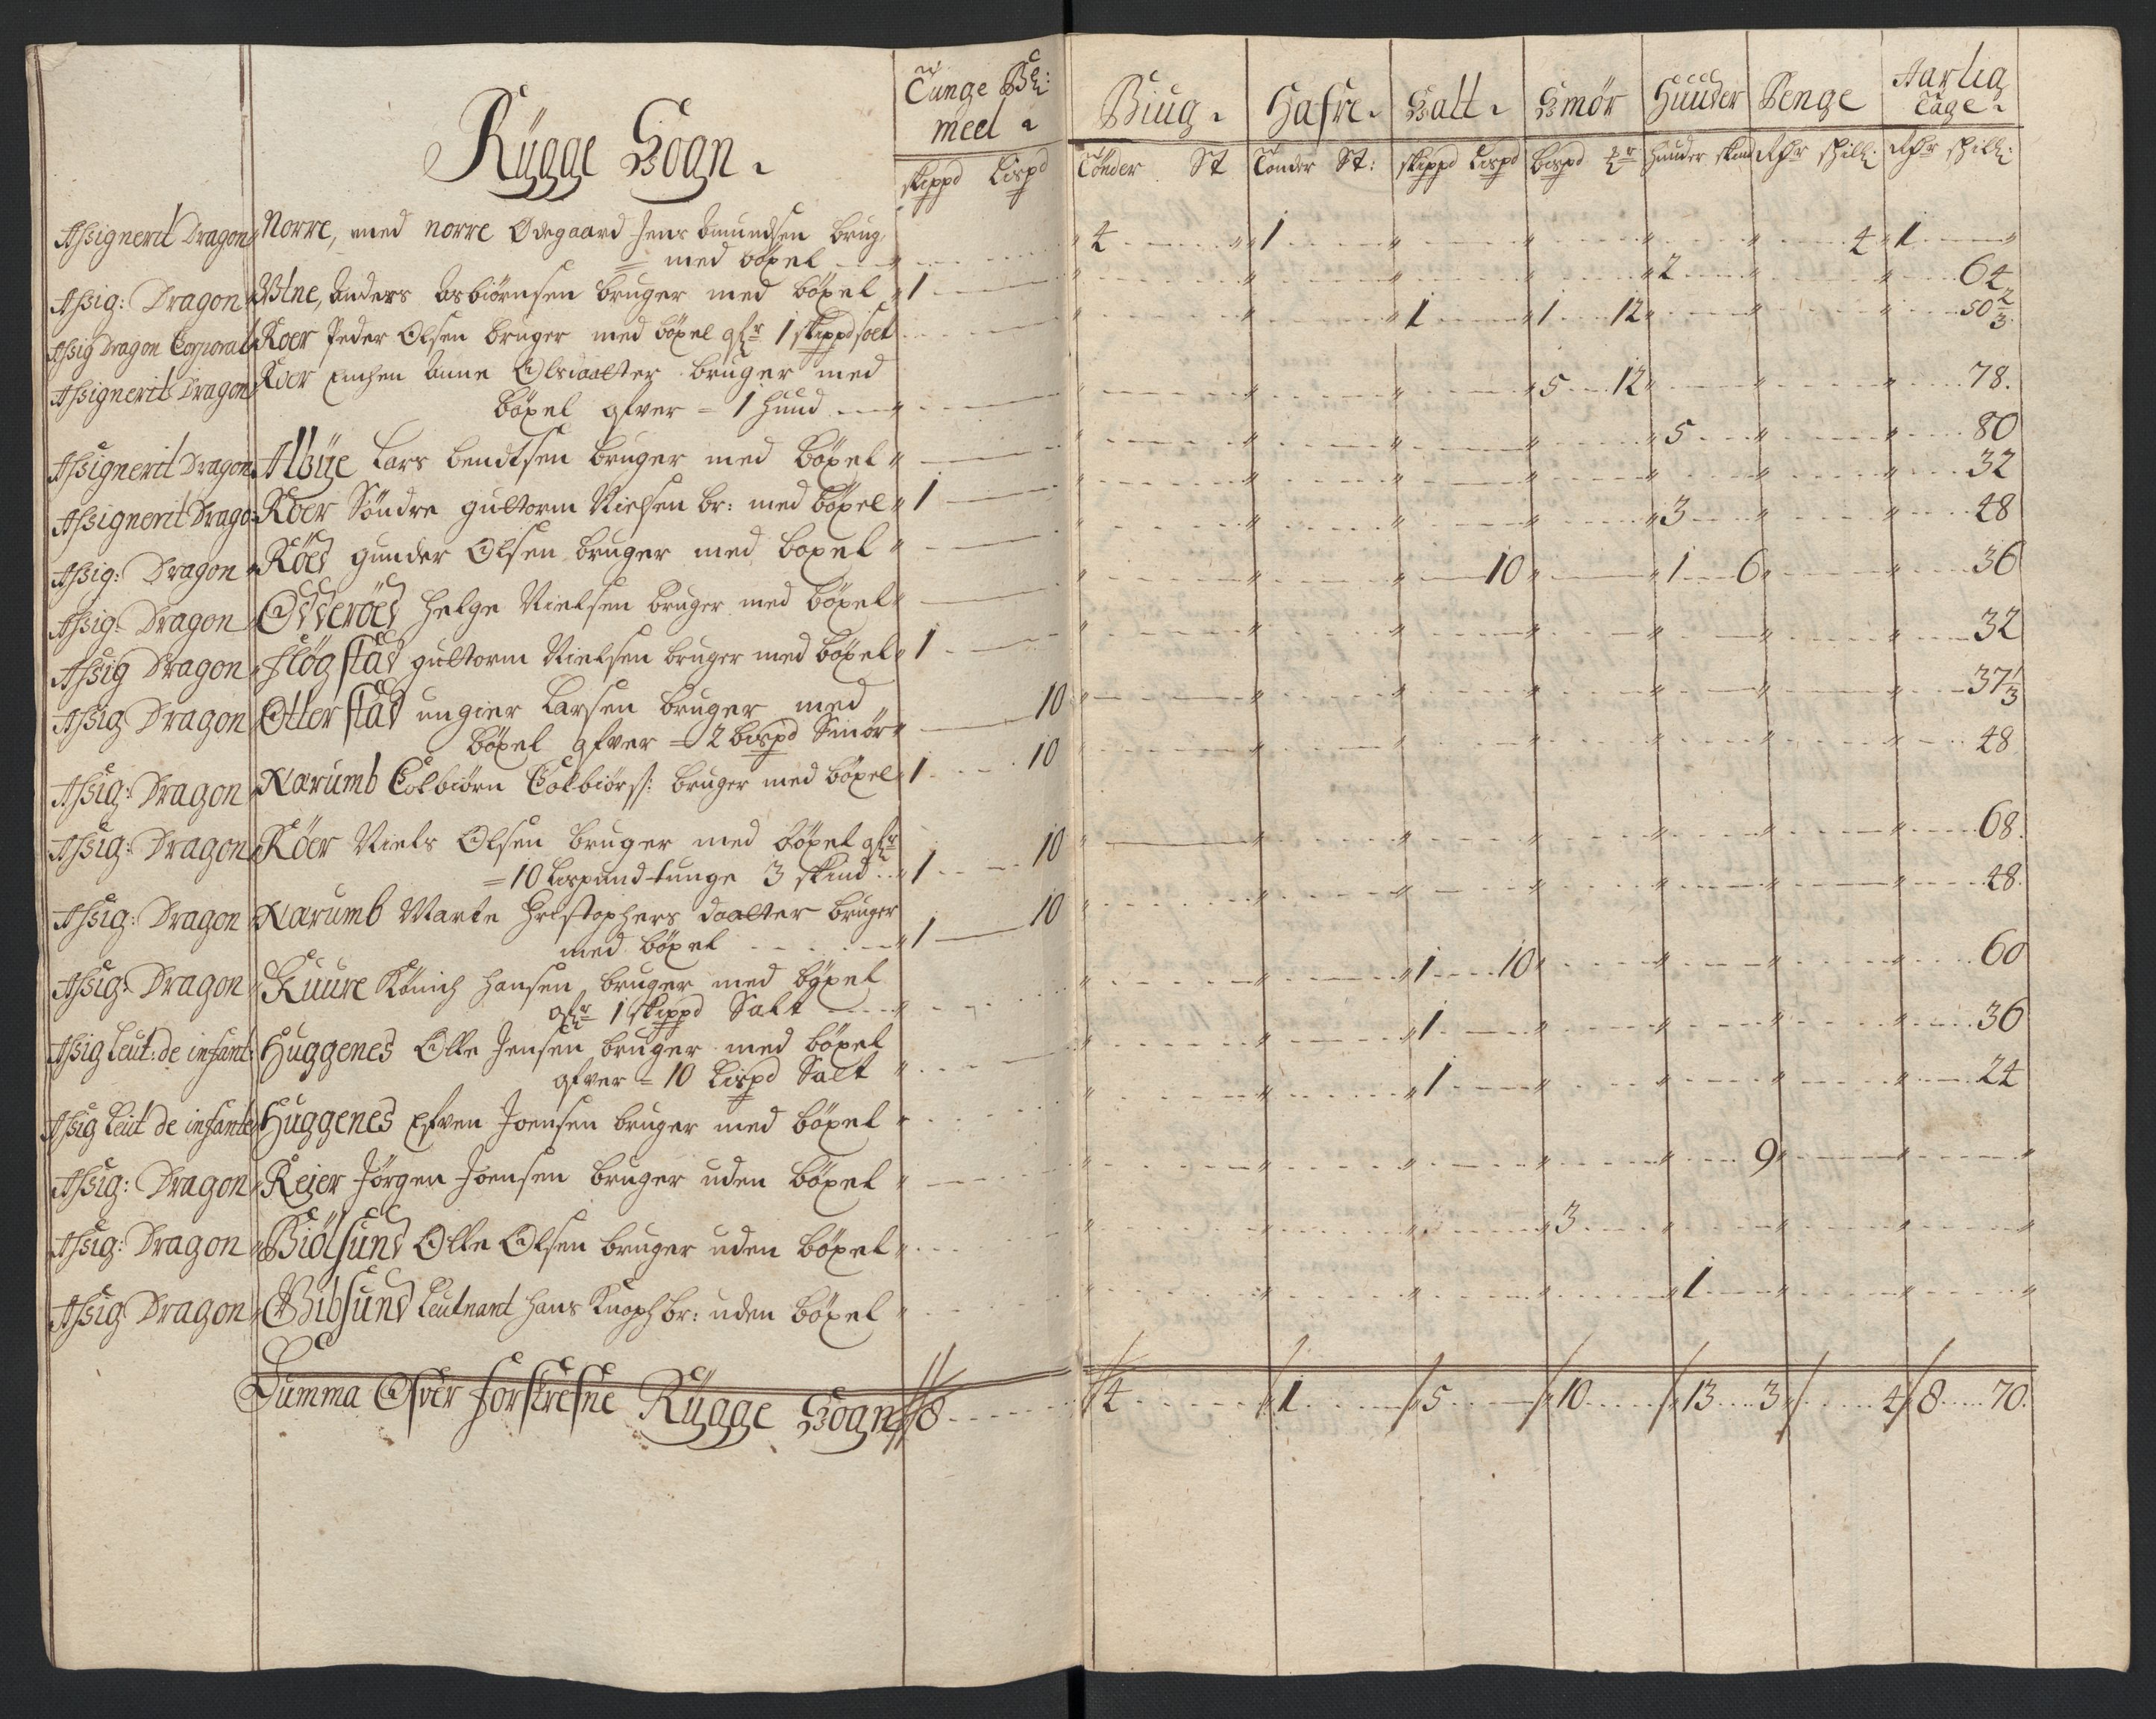 Rÿgge Sogn.
Tunge Bℓ: meel
Biug. Hafre. Salt. Smör Huuder Penge Aarlig Tage.
skippd Lispd Tönder St Tonder St: skippd Lispd bispd Huuder skind Rdr skill: Rdr skill:
Assignerit Dragon Norre, med norre Ødegaard Jens Amundsen brug.
med böxel 4 1 4 1
Assig: Dragon Anders Asbiörnsen bruger med böxel 1 2 64
Assig Dragon Corporal Roer Peder Olsen bruger med böxel gfr 1 skippd salt 1 1 12 50 2/3
Assignerit Dragon Roer Enchen Anne Olsdaatter bruger med
böxel gfver = 1 huud 5 12 78.
Assignerit Dragon Albÿe Lars bendtsen bruger med böxel 5 80
Assignerit Drago: Roer Söndre guttorm Nielsen br: med böxel 1 32
Assig: Dragon Röed gunder Olsen bruger med boxel 3 48
Assig: Dragon Odderöed Helge Nielsen bruger med böxel 10 1 6 36
Assig Dragon Flögstad guttorm Nielsen bruger med böxel 1 32
Assig Dragon Otterstad ungier Larsen bruger med
böxel gfver = 2 bispd Smör 10 37 1/3
Assig: Dragon Karumb Colbiörn Colbiörs: bruger med böxel 1 10 48
Assig: Dragon Röer Niels Olsen bruger med böxel gfr
= 10 Lispund tunge 3 skind 1 10 68.
Assig: Dragon Karumb Marte Christophers daatter bruger
med böxel 1 10 48.
Assig: Dragon Kuure Könich Hansen bruger med böxel
gfr 1 skippd Salt 1 10 60
Assig Leut: de infant: Huggenes Olle Jensen bruger med böxel
gfver = 10 Lispd Salt 1 36
Assig Leut de infante Huggenes Efven Joensen bruger med böxel 1 24
Assig: Dragon Rejer Jörgen Joensen bruger uden böxel 9
Assig: Dragon Biölsund Olle Olsen bruger uden böxel 3
Assig Dragon Vibsund Leutnant Hans Knoph br: uden böxel 1
Summa Ofver forskrefne Rÿgge Sogn 8 4 1 5 10 13 3 4 8 70.